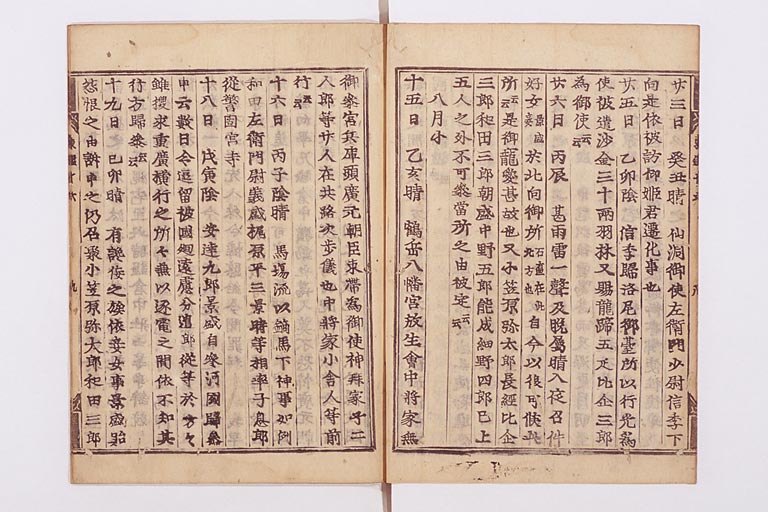 廿三日 癸丑晴 仙洞御使左衛門少尉信季下
向是依被訪御姫君遷化事也
廿五日 乙卯陰 信季歸洛尼御臺所以行光為
使被遣沙金三十兩羽林又賜龍蹄五疋比企三郎
為御使云々
廿六日 丙辰 甚雨雷一聲及晩属晴入夜召件
好女景盛妾於北向御所石壺在此北方也自今以後可候此
所云々是御寵愛甚故也又小笠原弥太郎長經比企
三郎和田三郎朝盛中野五郎能成細野四郎已上
五人之外不可參當所之由被定云々
八月小
十五日 乙亥晴 鶴岳八幡宮放生會中將家無
御參宮兵庫頭廣元朝臣束帶為御使神拜家子二
人郎等廿人在共路次歩儀也中將家小舎人等前
行云々
十六日 丙子陰晴 馬場流以鏑馬下神事如例
和田左衛門尉義盛梶原平三景時等相率子息郎
從警固宮寺
十八日 戊寅陰 安達九郎景盛自參河國歸參
申云數日令逗留彼國廻遠慮分遣郎從等於方々
雖搜求重廣横行之所々無以逐電之間依不知其
行方歸參云々
十九日 己卯晴 有讒侫之族依妾女事景盛貽
怨恨之由訴申之仍召聚小笠原弥太郎和田三郎